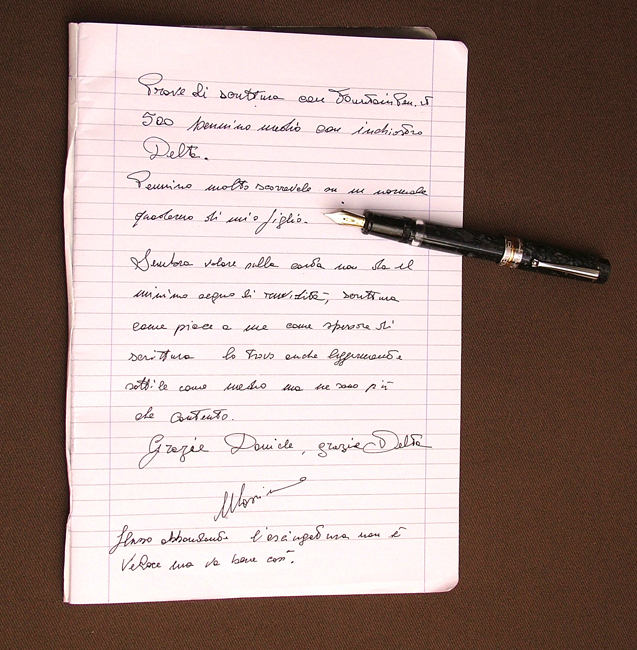 Prove di scrittura con FountainPen.it
500 pennino medio con inchiostro
Delta.
Pennino molto scorrevole su un normale
quaderno di mio figlio.
Sembra volare sulla carta non da il
minimo segno di ruvidità, scrittura
come piace a me come spessore di
scrittura lo trovo anche leggermente
sottile come medio ma ne sono più
che contento.
Grazie Daniele, grazie Delta
flusso abbondante l'asciugatura non è
veloce ma va bene così.